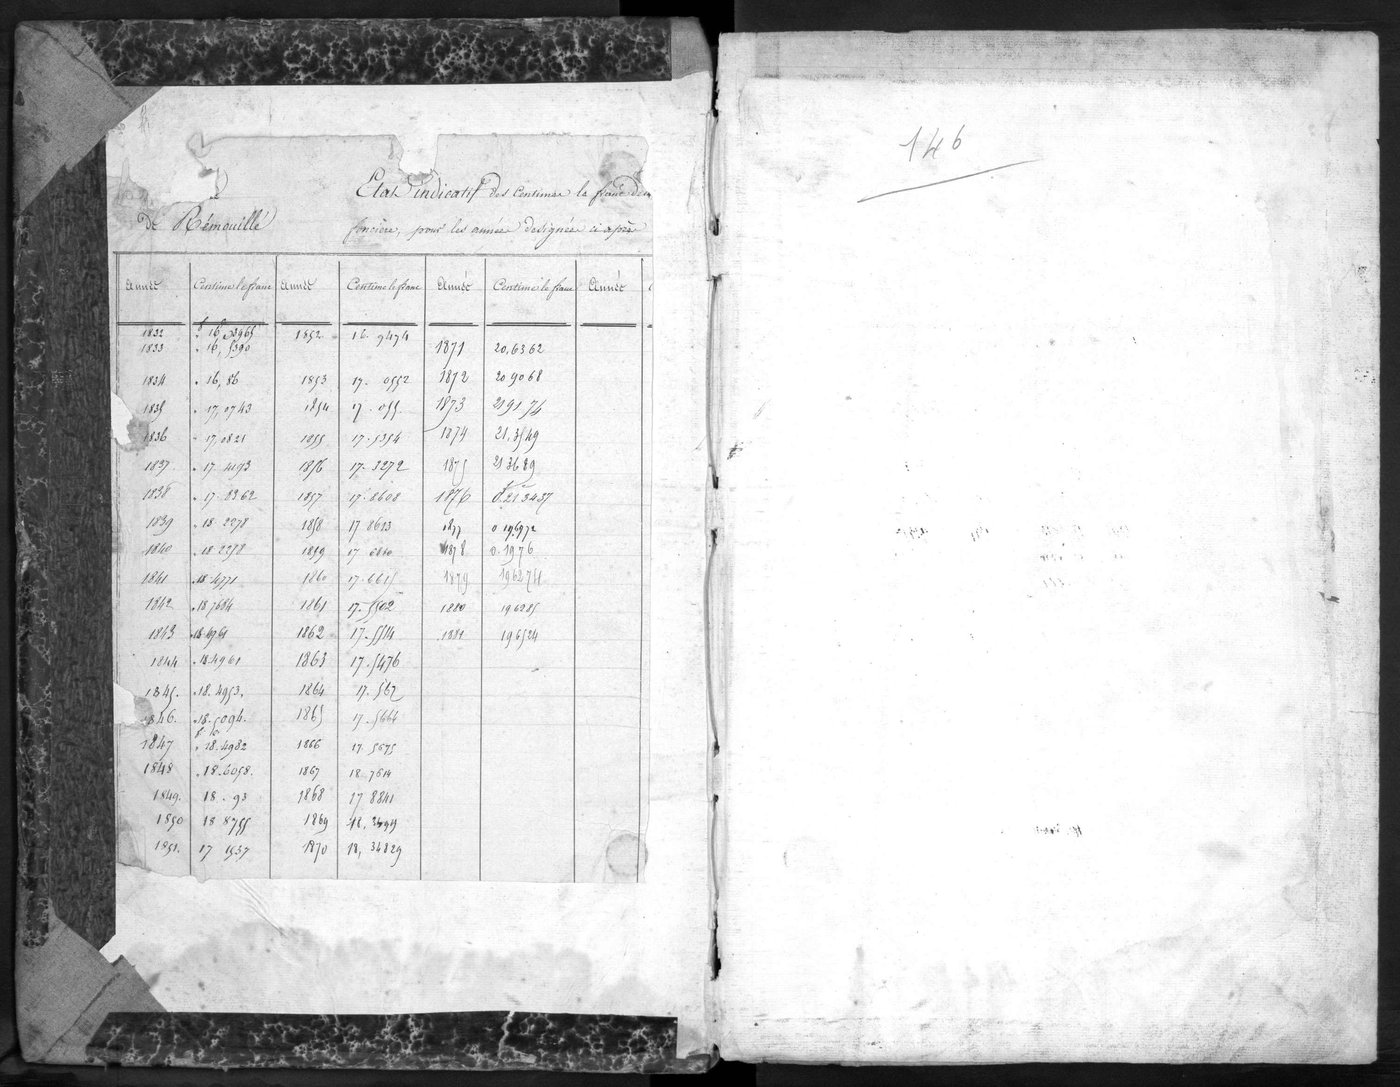 Etat indicatif des Centimes le franc
de Rémouillé
foncière, pour les années désignées ci après
Année Centime le franc Année Centime le franc Année Centime le franc Année
1832 1852 16. 9474
1833 16, 5390 1871 20,6362
1834 16,86 1853 17. 0552 1872 20 9068
1835 17,0743 1854 17. 055 1873 21 91 74
1836 17,0821 1855 17.5354 1874 21,3549
1837 17.4193 1856 17.3272 1875 21 3689
1838 17.8362 1857 17.8608 1876 0.21 3437
1839 18.2278 1858 17 8613 1877
1840 18 2278 1859 17 6840 1878 0.1976
1841 18.4771 1860 17.6615 1879 196274
1842 18 7684 1861 17.5502 1880 196285
1843 18 4961 1862 17.5514 1881 196524
1844 18.4961 1863 17.5476
1845. 18.4953. 1864 17.567
1846. 18.5094. 1865 17.5664
1847 18.4982 1866 17.5675
1848 18.6058. 1867 18.7614
1849. 18.93 1868 17 8841
1850 18 8755 1869
1851. 17 1537 1870 18, 34829
146